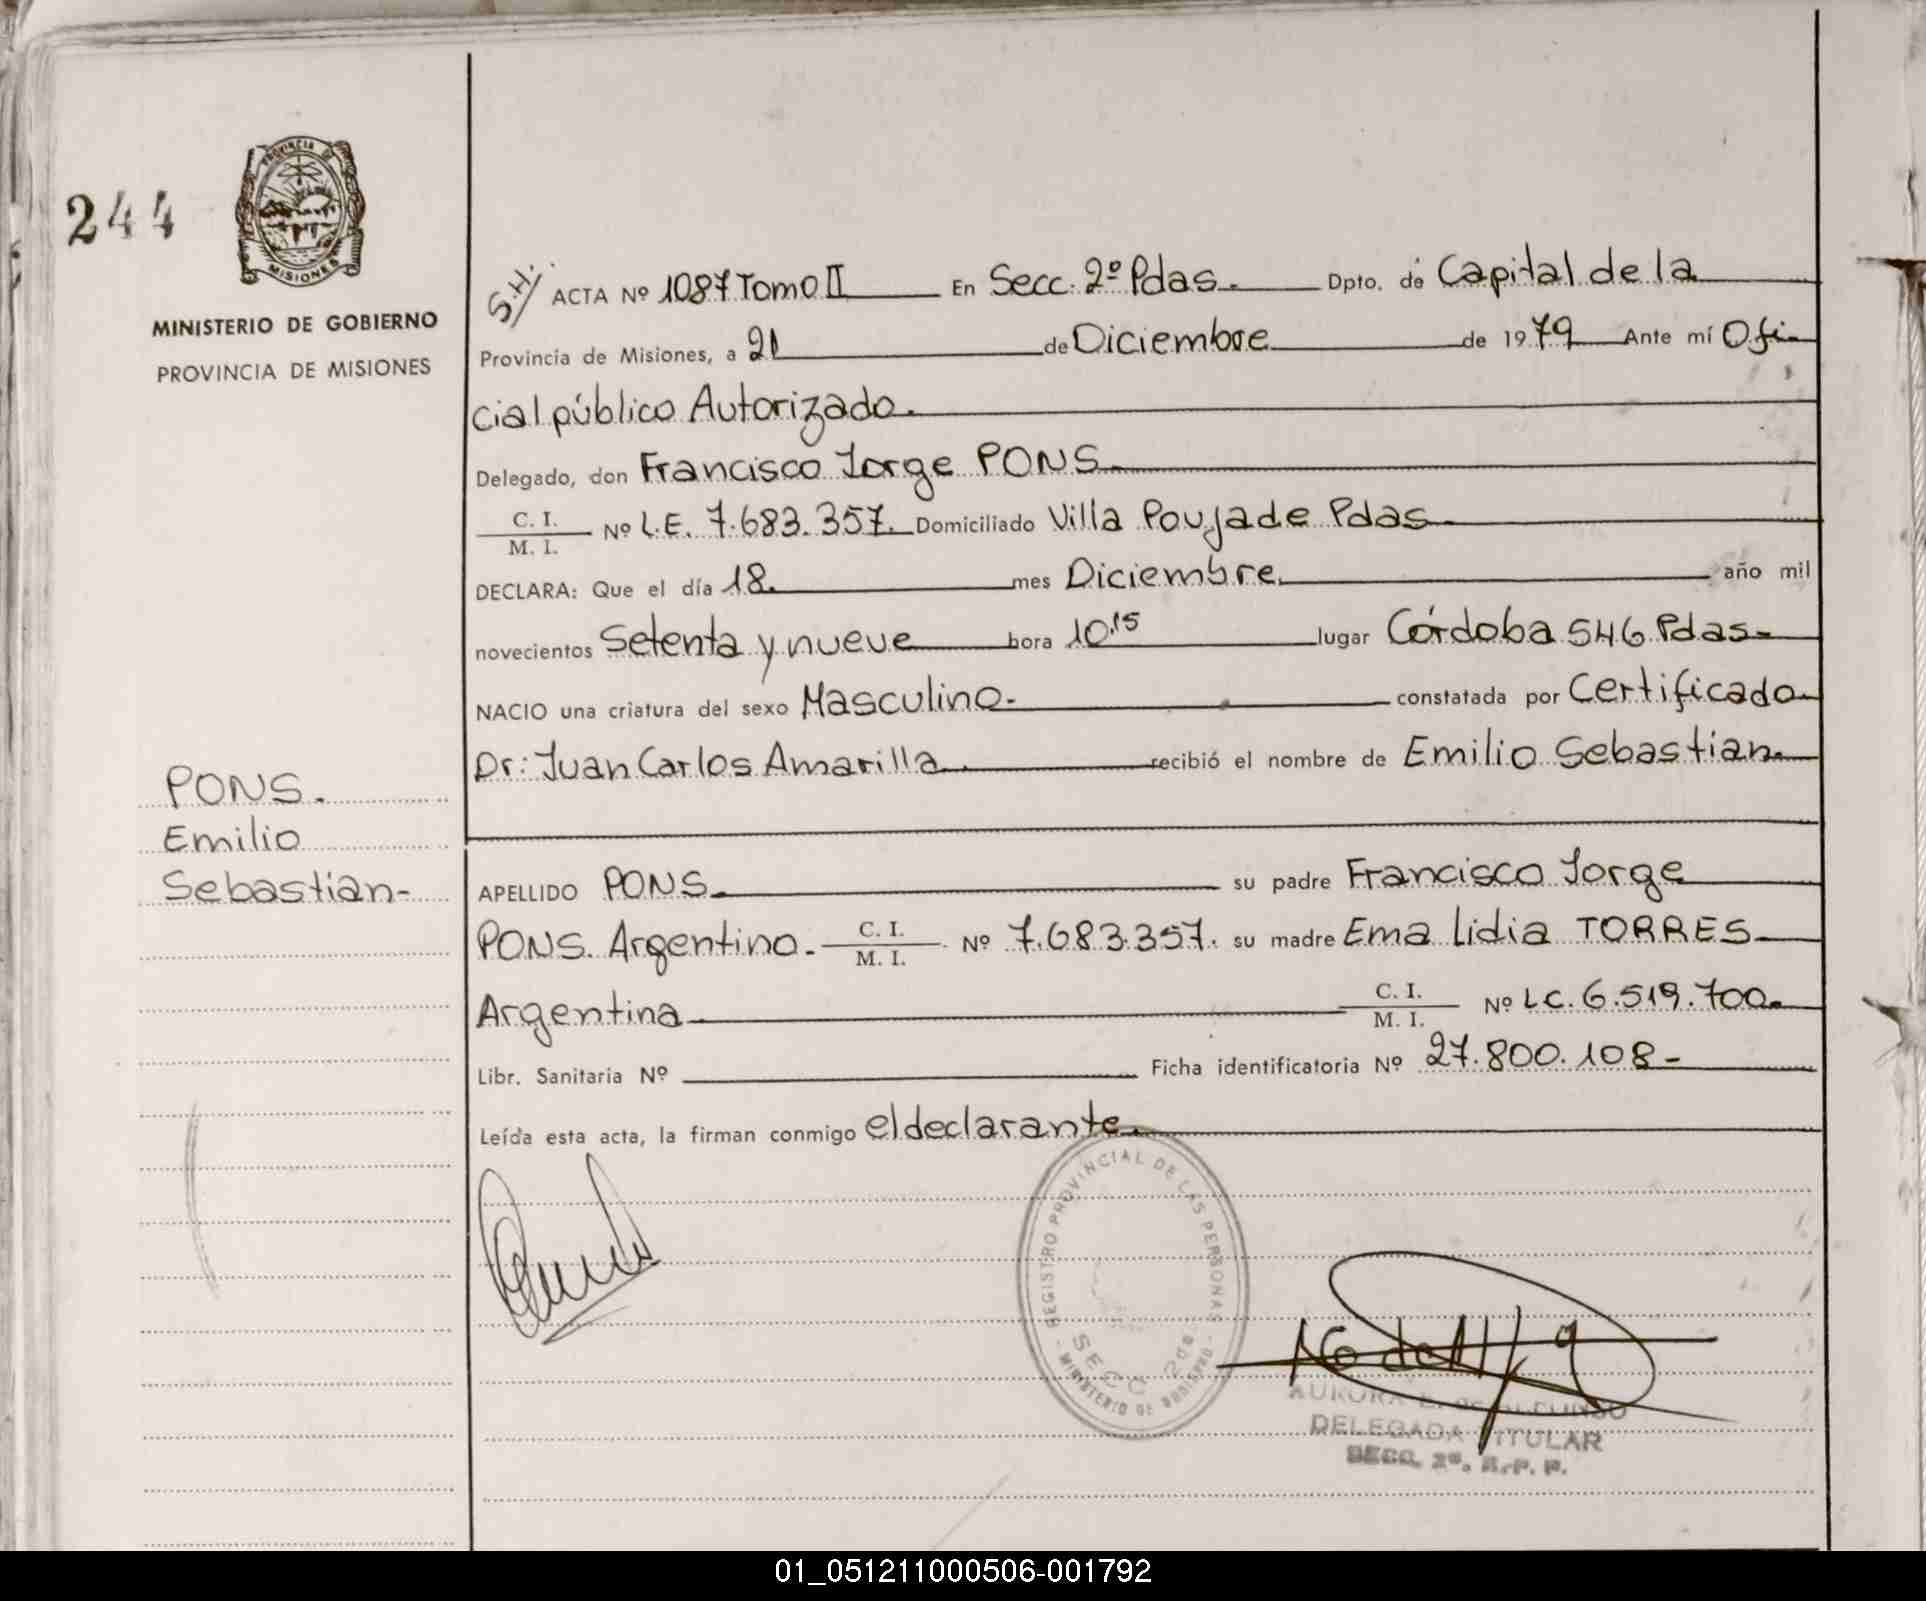 244
PROVINCIA DE
MISIONES
MINISTERIO DE GOBIERNO
PROVINCIA DE MISIONES
PONS.
Emilio
Sebastian-
S.H. ACTA Nº 1087 Tomo II En Secc. 2º Pdas. Dpto. de Capital de la
Provincia de Misiones, a 21 de Diciembre de 1979 Ante mí Ofi-
cial público Autorizado.
Delegado, don Francisco Jorge PONS.
C. I.
M. I.
Nº L.E. 7.683.357. Domiciliado Villa Poujade Pdas.
DECLARA: Que el día 18. mes Diciembre. año mil
novecientos Setenta y nueve hora 10.15 lugar Córdoba 546 Pdas-
NACIO una criatura del sexo Masculino. constatada por Certificado
Dr: Juan Carlos Amarilla. recibió el nombre de Emilio Sebastian.
APELLIDO PONS. su padre Francisco Jorge
PONS. Argentino. C. I. M. I. Nº 7.683.357. su madre Ema Lidia TORRES
Argentina. C. I. M. I. Nº L.C. 6.519.700.
Libr. Sanitaria Nº Ficha identificatoria Nº 27.800.108-
Leída esta acta, la firman conmigo el declarante.
REGISTRO PROVINCIAL DE LAS PERSONAS
SECC. 2da
MINISTERIO DE GOBIERNO
AURORA DE ALFONSO
DELEGADA TITULAR
SECC. 2ª. R. P. P.
01_051211000506-001792